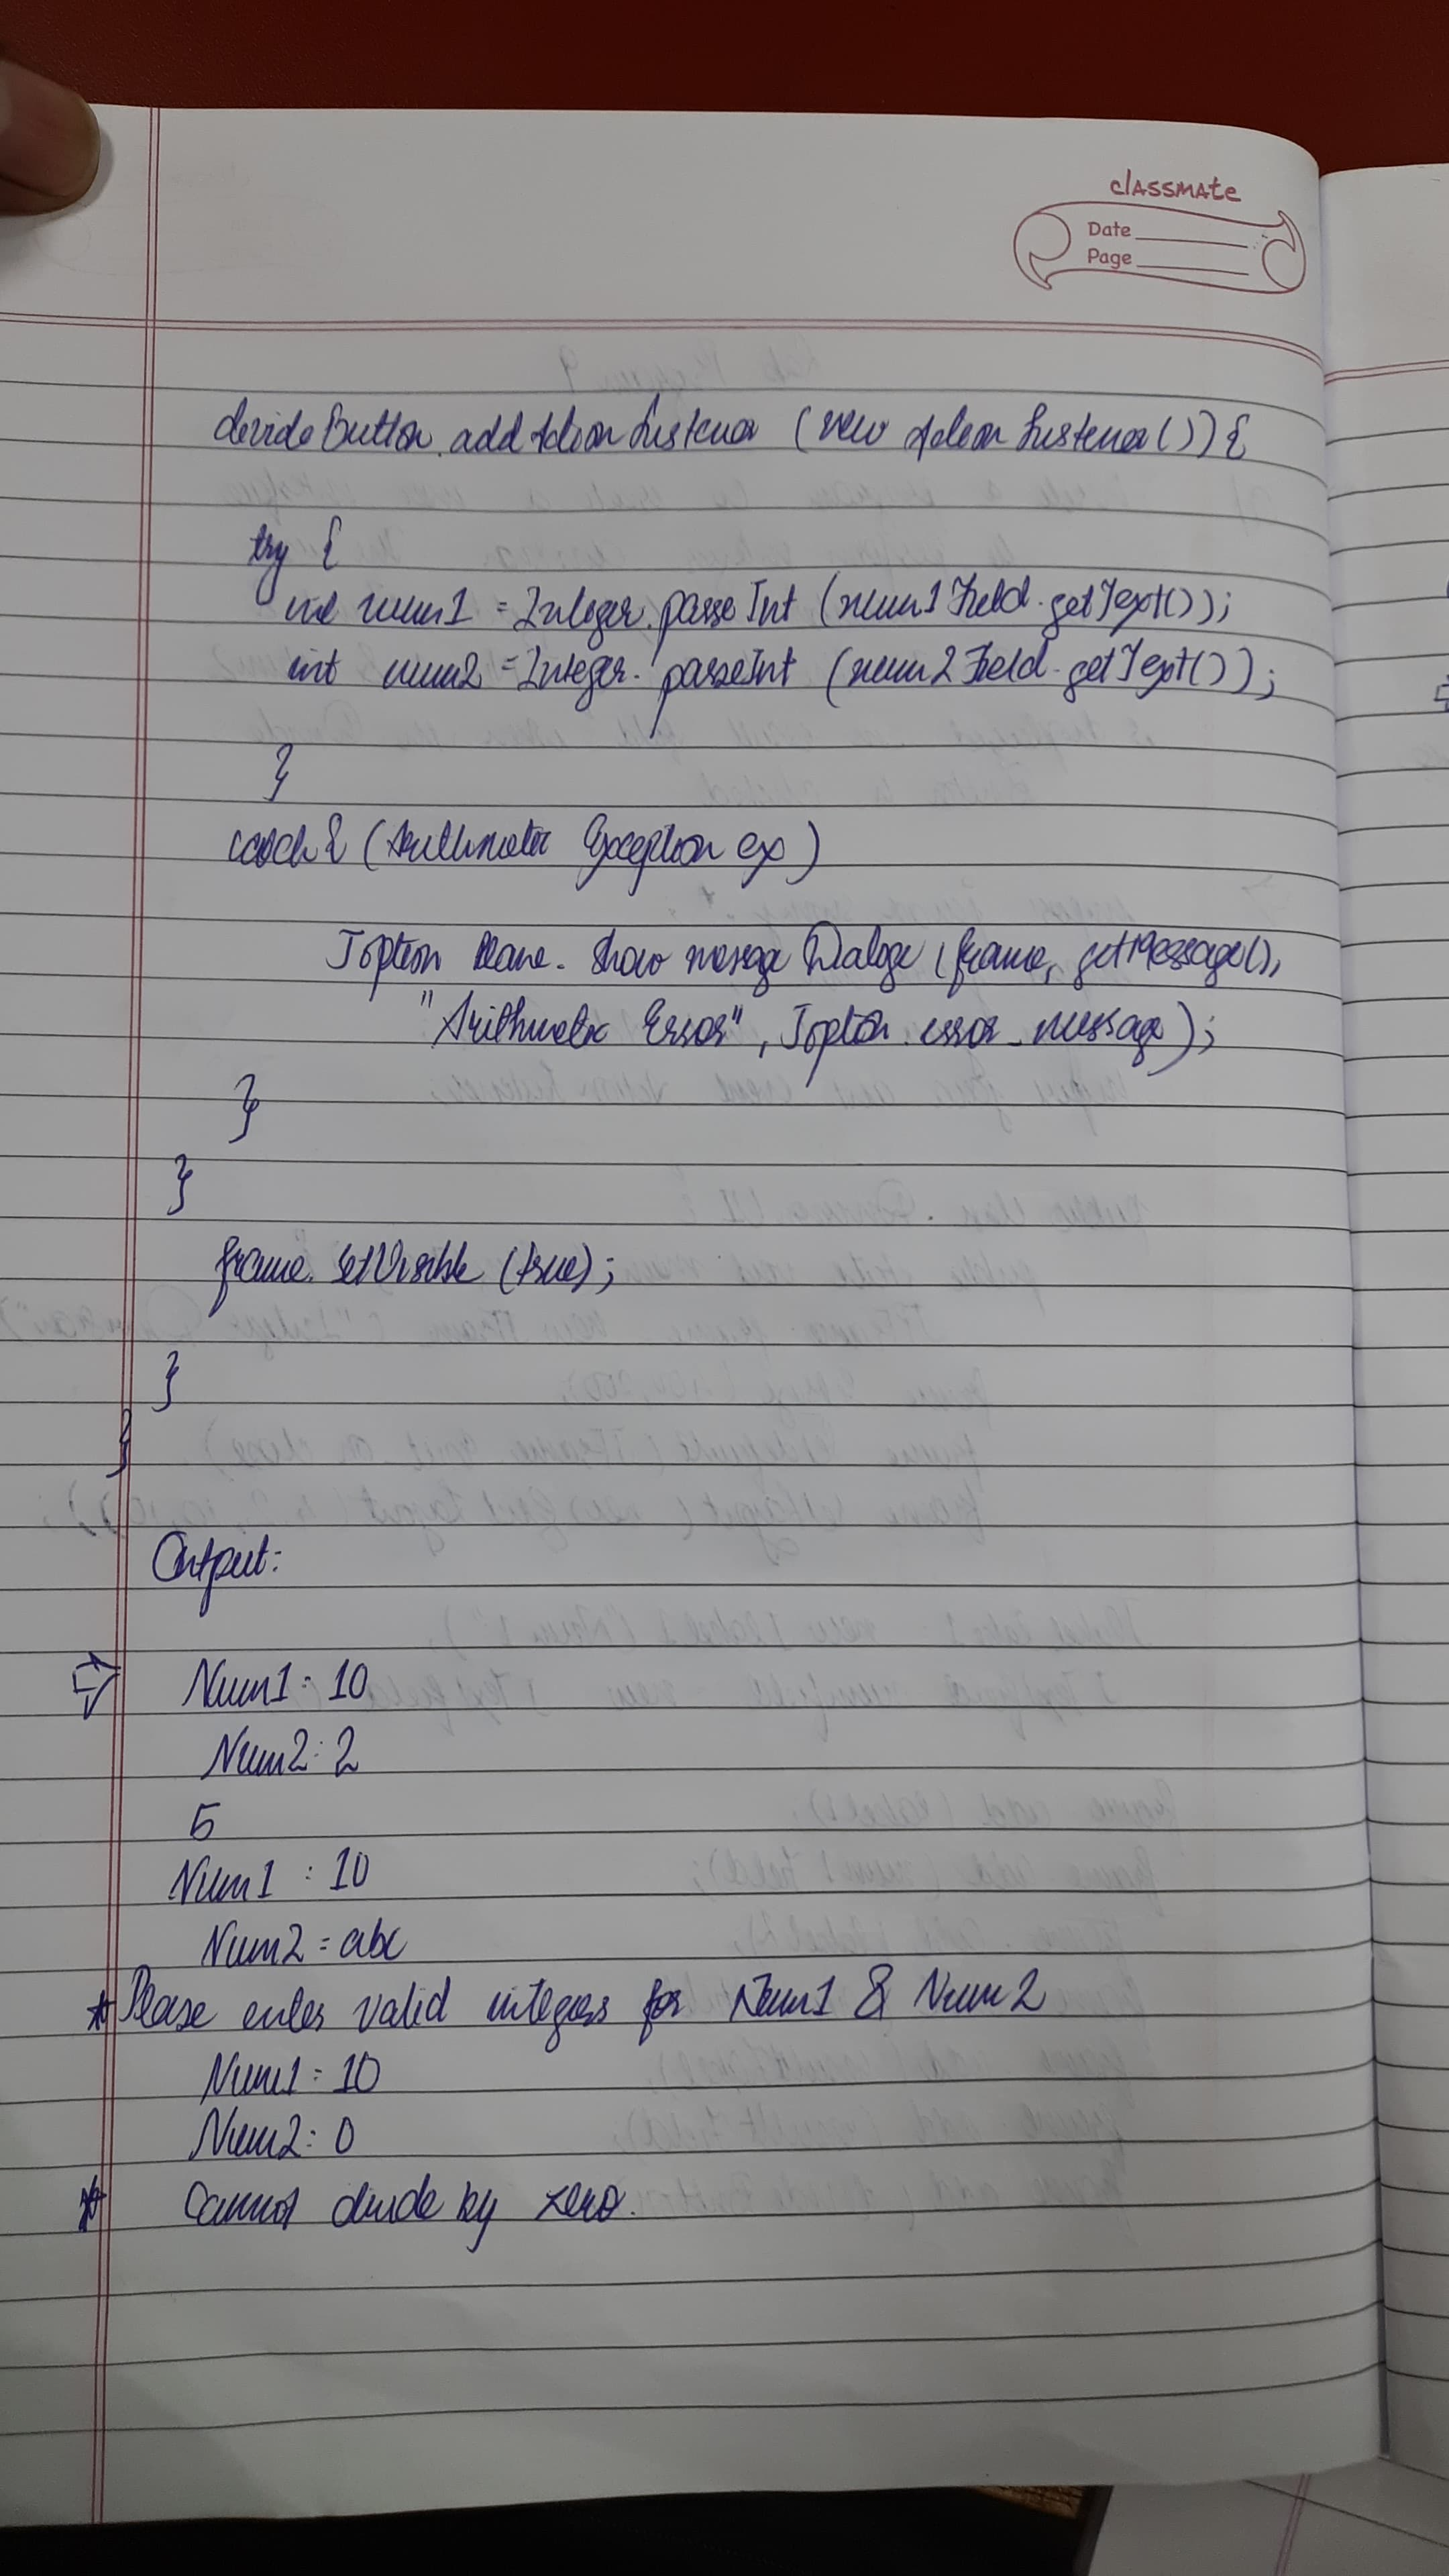 classmate
Date
Page
divideButton.addActionListener (new ActionListener()) {
try {
int num1 = Integer.parseInt (num1Field.getText());
int num2 = Integer.parseInt (num2Field.getText());
}
catch { (Arithmetic Exception ex)
Joption Pane. Show message Dialoge (frame, getMessage(),
"Arithmetic Error", Joption.error_message);
}
}
frame.setVisible (true);
}
}
Output:
Num1: 10
Num2: 2
5
Num1 : 10
Num2 = abc
* Please enter valid integers for Num1 & Num2
Num1 = 10
Num2: 0
* Cannot divide by zero.